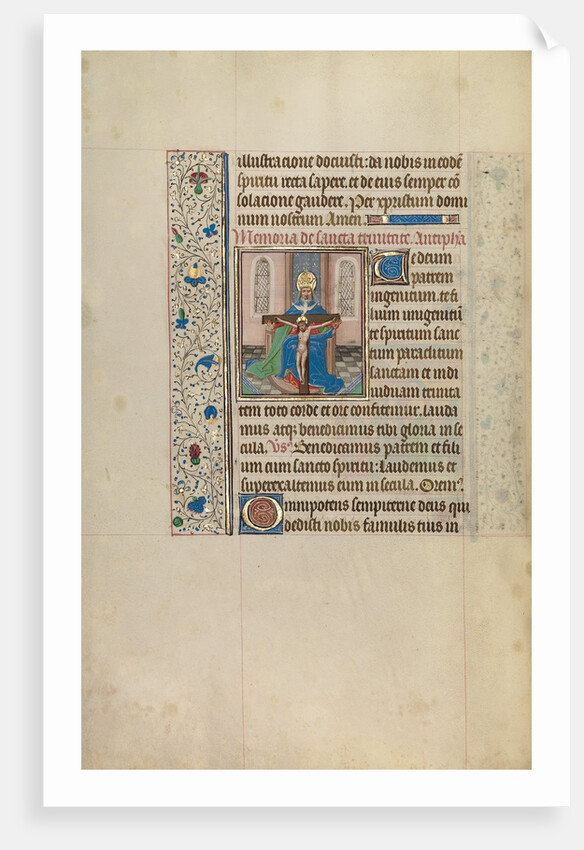 illustracione docuisti: da nobis in eodē
spiritu recta sapere. et de eius semper cō
solacione gaudere. Per xpristum domi
num nostrum Amen.
Memoria de sancta trinitate. Antipha
Te deum
patrem
ingenitum. te fi
lium unigenitū
te spiritum sanc
tum paraclitum
sanctam et indi
uiduam trinita
tem toto corde et ore confitemur. lauda
mus atqz benedicimus tibi gloria in se
cula. Vs? Benedicamus patrem et fili
um cum sancto spiritu: Laudemus et
superexaltemus eum in secula. Orem?
Omnipotens sempiterne deus qui
dedisti nobis famulis tuis in